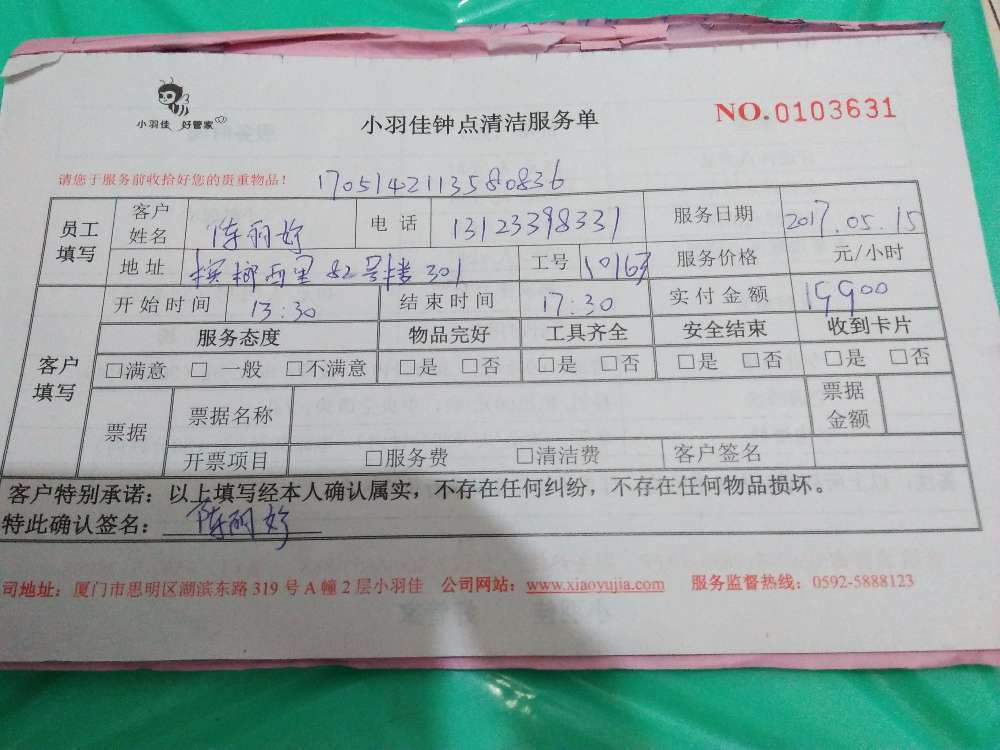 小羽佳 好管家
小羽佳钟点清洁服务单
NO.0103631
请您于服务前收拾好您的贵重物品！ 1705142113580836
员工填写 客户姓名 陈丽婷 电话 13123398331 服务日期 2017.05.15
地址 槟榔西里82号楼301 工号 服务价格 元/小时
客户填写 开始时间 13:30 结束时间 17:30 实付金额
服务态度 物品完好 工具齐全 安全结束 收到卡片
□满意 □一般 □不满意 □是 □否 □是 □否 □是 □否 □是 □否
票据 票据名称 票据金额
开票项目 □服务费 □清洁费 客户签名
客户特别承诺：以上填写经本人确认属实，不存在任何纠纷，不存在任何物品损坏。
特此确认签名：陈丽婷
司地址：厦门市思明区湖滨东路319号A幢2层小羽佳 公司网站：www.xiaoyujia.com 服务监督热线：0592-5888123